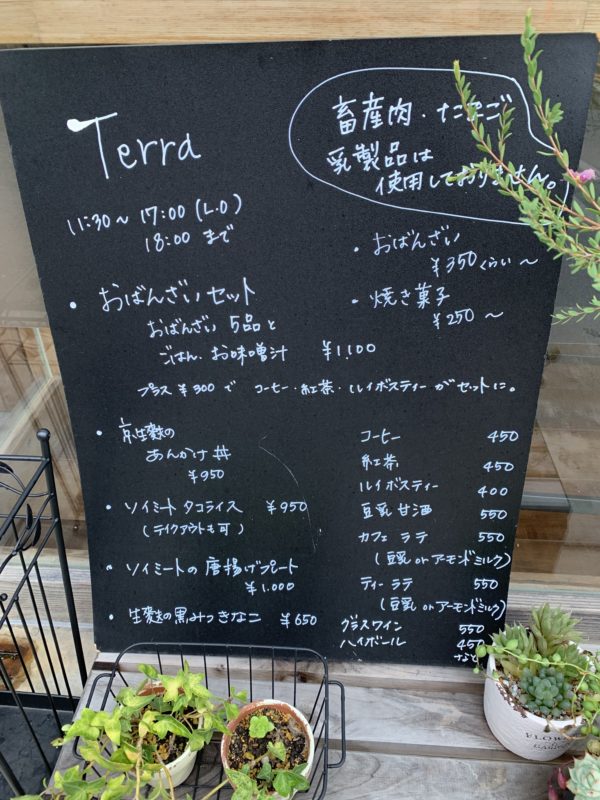 Terra
11:30～17:00(L.O)
18:00まで
畜産肉・たまご
乳製品は
使用しておりません。
・おばんざい
¥350くらい～
・焼き菓子
¥250～
・おばんざいセット
おばんざい5品と
ごはん、お味噌汁 ¥1,100
プラス¥300で コーヒー・紅茶・ルイボスティーがセットに。
・京生麩の
あんかけ丼
¥950
・ソイミートタコライス ¥950
(テイクアウトも可)
・ソイミートの唐揚げプレート
¥1,000
・生麩の黒みつきなこ ¥650
コーヒー 450
紅茶 450
ルイボスティー 400
豆乳甘酒 550
カフェラテ 550
(豆乳orアーモンドミルク)
ティーラテ 550
(豆乳orアーモンドミルク)
グラスワイン 550
ハイボール 450
など